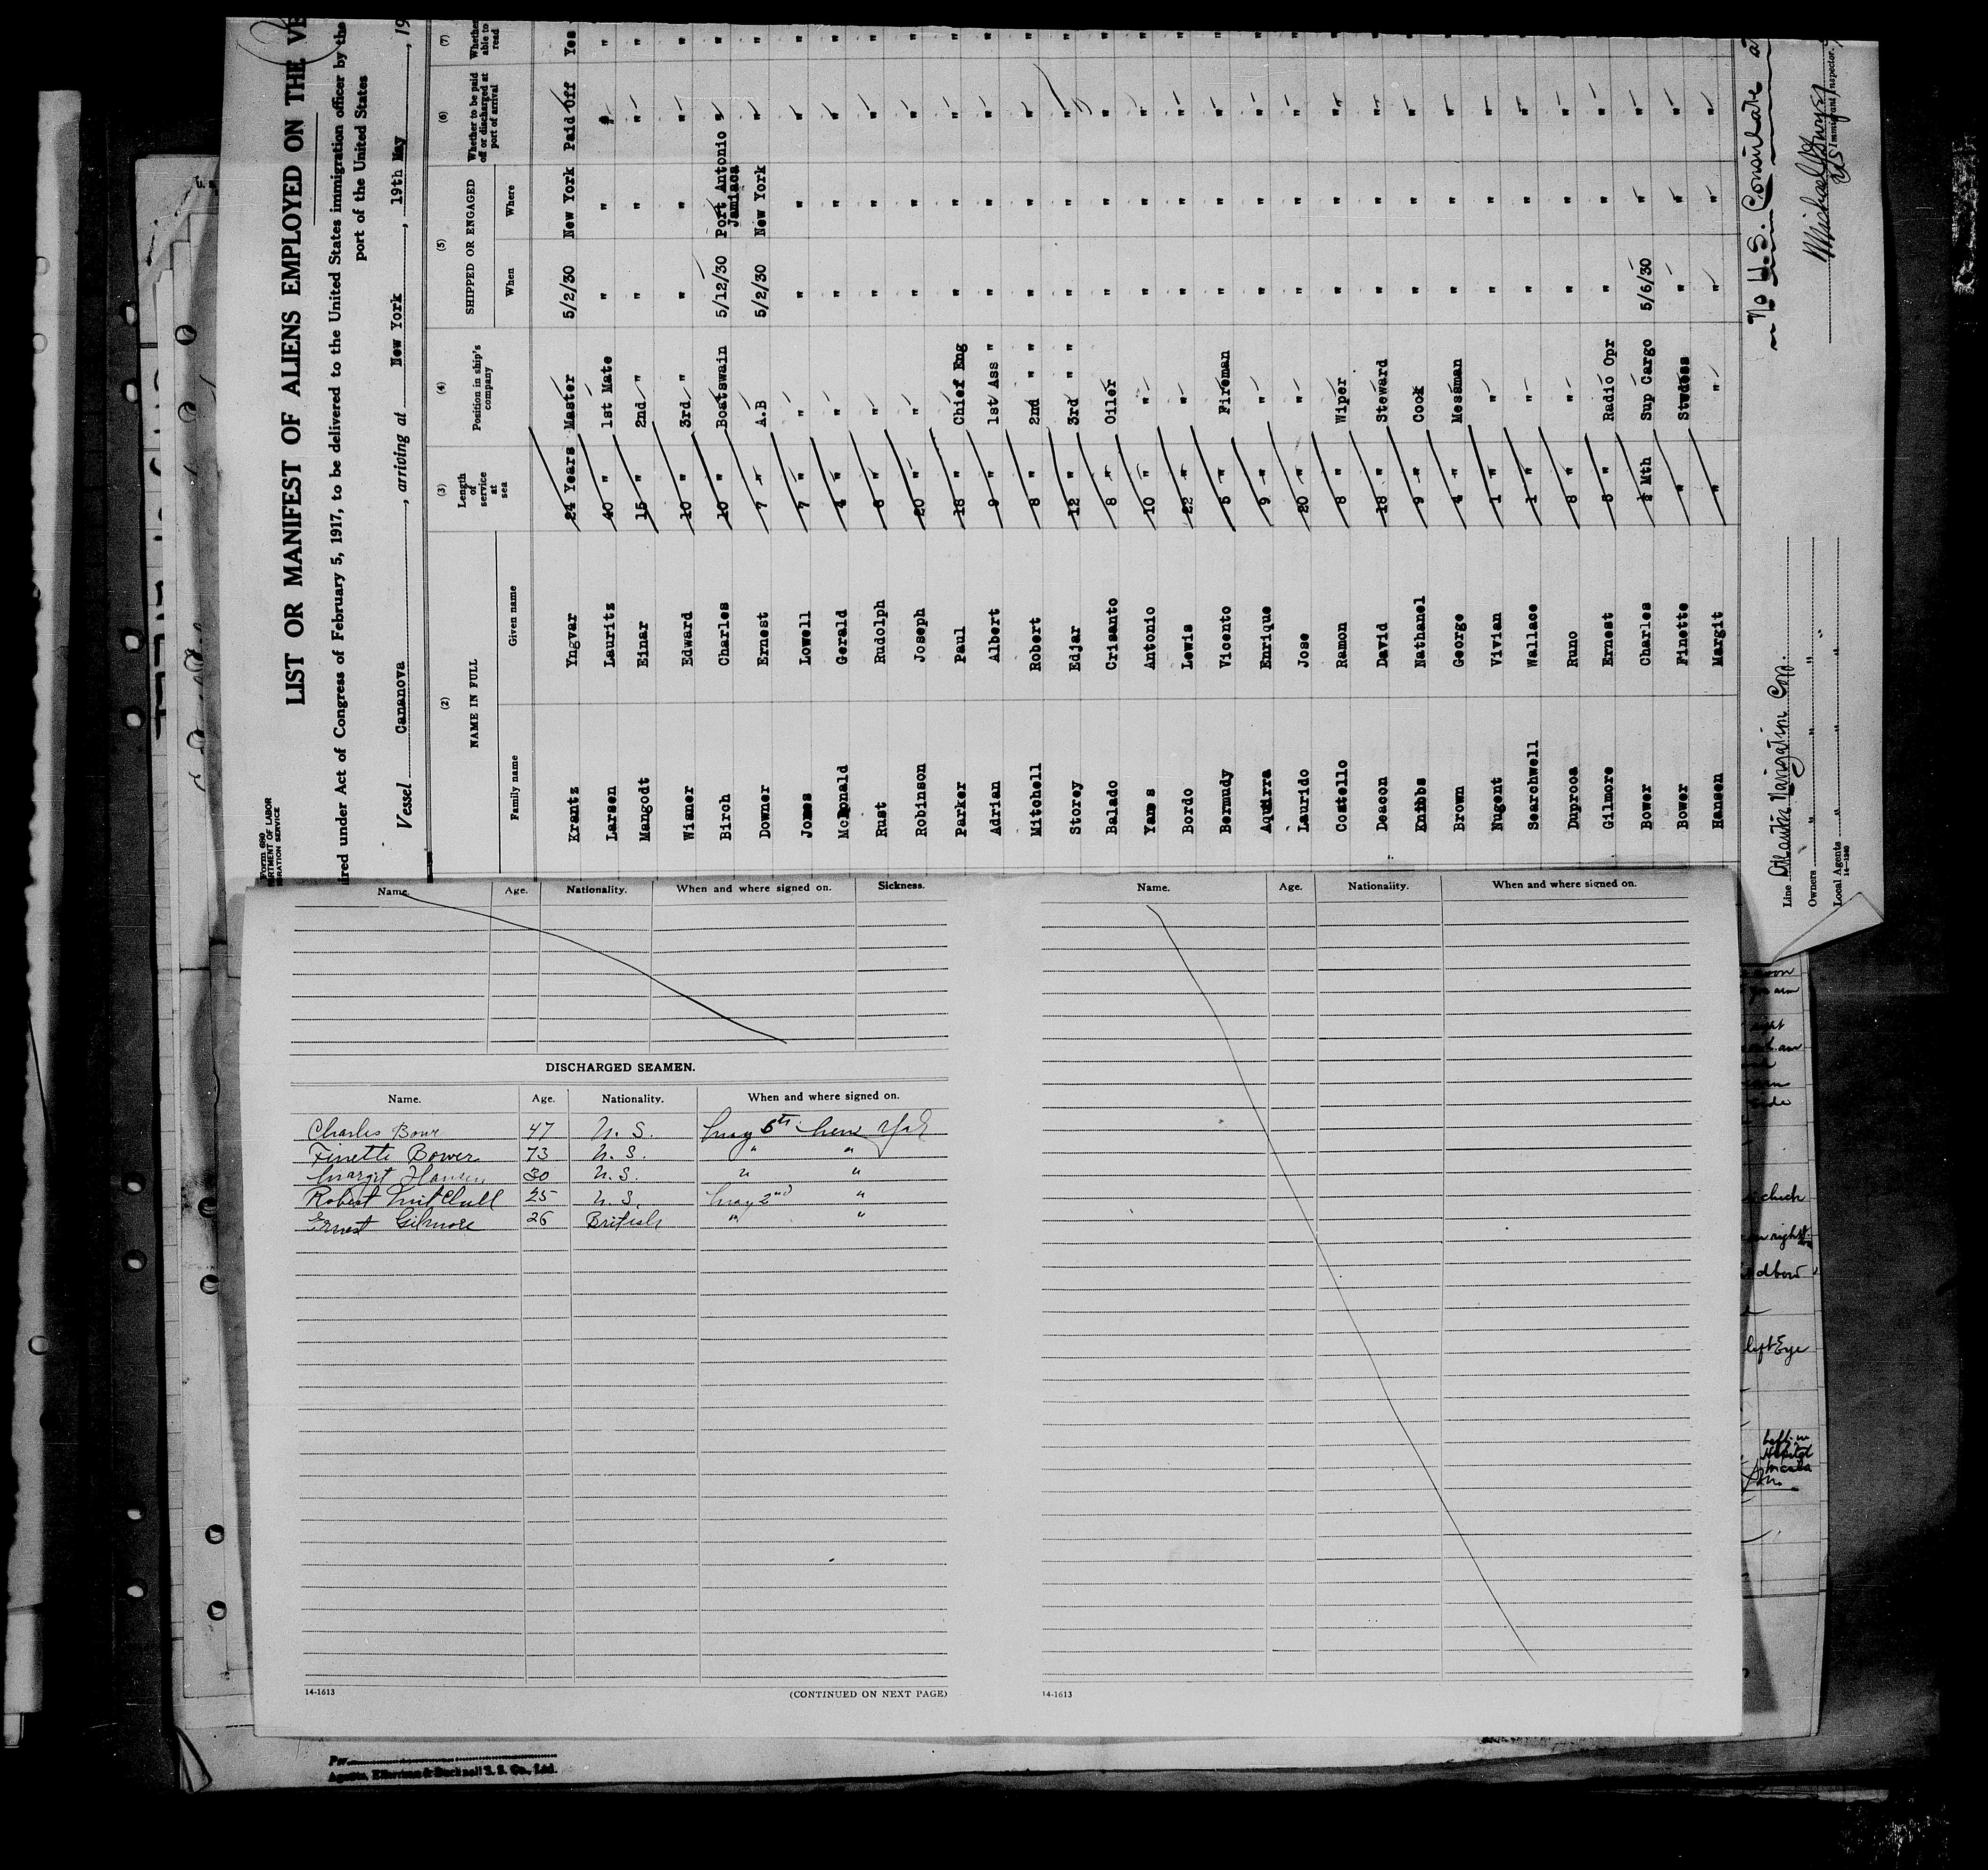 LIST OR MANIFEST OF ALIENS EMPLOYED ON THE VE
ired under Act of Congress of February 5, 1917, to be delivered to the United States immigration officer by the
port of the United States
Form 680
RTMENT OF LABOR
GRATION SERVICE
Vessel Cananova, arriving at New York, 19th May, 19
(2) NAME IN FULL (3) Length of service at sea (4) Position in ship's company (5) SHIPPED OR ENGAGED (6) Whether to be paid off or discharged at port of arrival (7) Whether able to read
Family name Given name When Where
Krantz Yngvar 24 Years Master 5/2/30 New York Paid Off Yes
Larsen Lauritz 40 " 1st Mate " " " "
Mangodt Einar 15 " 2nd " " " " "
Wisner Edward 10 " 3rd " " " " "
Birch Charles 10 " Boatswain 5/12/30 Port Antonio Jamiaca " "
Downer Ernest 7 " A.B 5/2/30 New York " "
Jones Lowell 7 " " " " " "
McDonald Gerald 4 " " " " " "
Rust Rudolph 6 " " " " " "
Robinson Joseph 20 " " " " " "
Parker Paul 18 " Chief Eng " " " "
Adrian Albert 9 " 1st Ass " " " " "
Mitchell Robert 8 " 2nd " " " " " "
Storey Edjar 12 " 3rd " " " " " "
Balado Crisanto 8 " Oiler " " " "
Yanes Antonio 10 " " " " " "
Bordo Lewis 22 " " " " " "
Bermudy Vicento 5 " Fireman " " " "
Aquirra Enrique 9 " " " " " "
Laurido Jose 20 " " " " " "
Costello Ramon 8 " Wiper " " " "
Deacon David 18 " Steward " " " "
Knibbs Nathanel 9 " Cook " " " "
Brown George 4 " Messman " " " "
Nugent Vivian 1 " " " " " "
Searchwell Wallace 1 " " " " " "
Duproa Runo 8 " " " " " "
Gilmore Ernest 5 " Radio Opr " " " "
Bower Charles ½ Mth Sup Cargo 5/6/30 " " "
Bower Finette " Studess " " " "
Hansen Margit " " " " " "
No U.S. Consulate
Line Atlantic Navigation Corp.
Owners " " " "
Local Agents " " " "
14-1240
US Immigrant Inspector.
Name. Age. Nationality. When and where signed on. Sickness.
DISCHARGED SEAMEN.
Name. Age. Nationality. When and where signed on.
Charles Bowr 47 U.S. May 6th New York
Finette Bower 73 U.S. " "
Margit Hansen 30 U.S. " "
Robert Mitchell 25 U.S. May 2nd "
Ernest Gilmore 26 British " "
14-1613
(CONTINUED ON NEXT PAGE)
Name. Age. Nationality. When and where signed on.
14-1613
right
check
on right
left Eye
Left in
Per
Agents, Ellerman & Bucknall S. S. Co., Ltd.